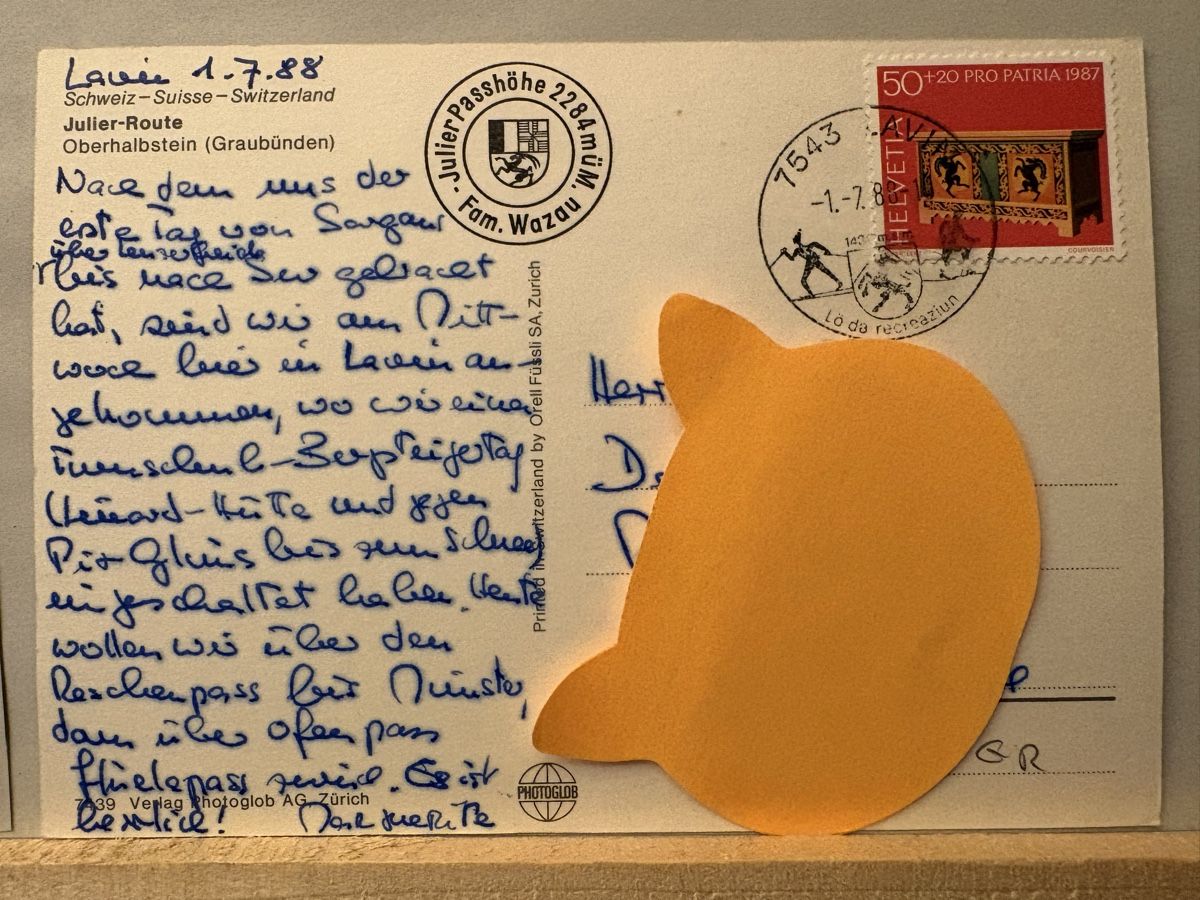 Lavin 1.7.88
Schweiz–Suisse–Switzerland
Julier-Route
Oberhalbstein (Graubünden)
Nach dem uns der
erste Tag von Sargans
über Lenzerheide
bis nach Sur gebracht
hat, sind wir am Mitt-
woch hier in Lavin an-
gekommen, wo wir einen
Bergsteigertag
-Hütte und gegen
Piz bis zum Schnee
eingeschaltet haben. Heute
wollen wir über den
Reschenpass bis Münster,
dann über Ofenpass
Flüelapass zurück. Es ist
herrlich! Marguerite
7439 Verlag Photoglob AG, Zürich
Julier Passhöhe 2284 m ü. M.
Fam. Wazau
Printed in Switzerland by Orell Füssli SA, Zurich
PHOTOGLOB
50+20 PRO PATRIA 1987
HELVETIA
COURVOISIER
7543 LAVIN
-1.-7.88
Lö da recreaziun
Herr
ER